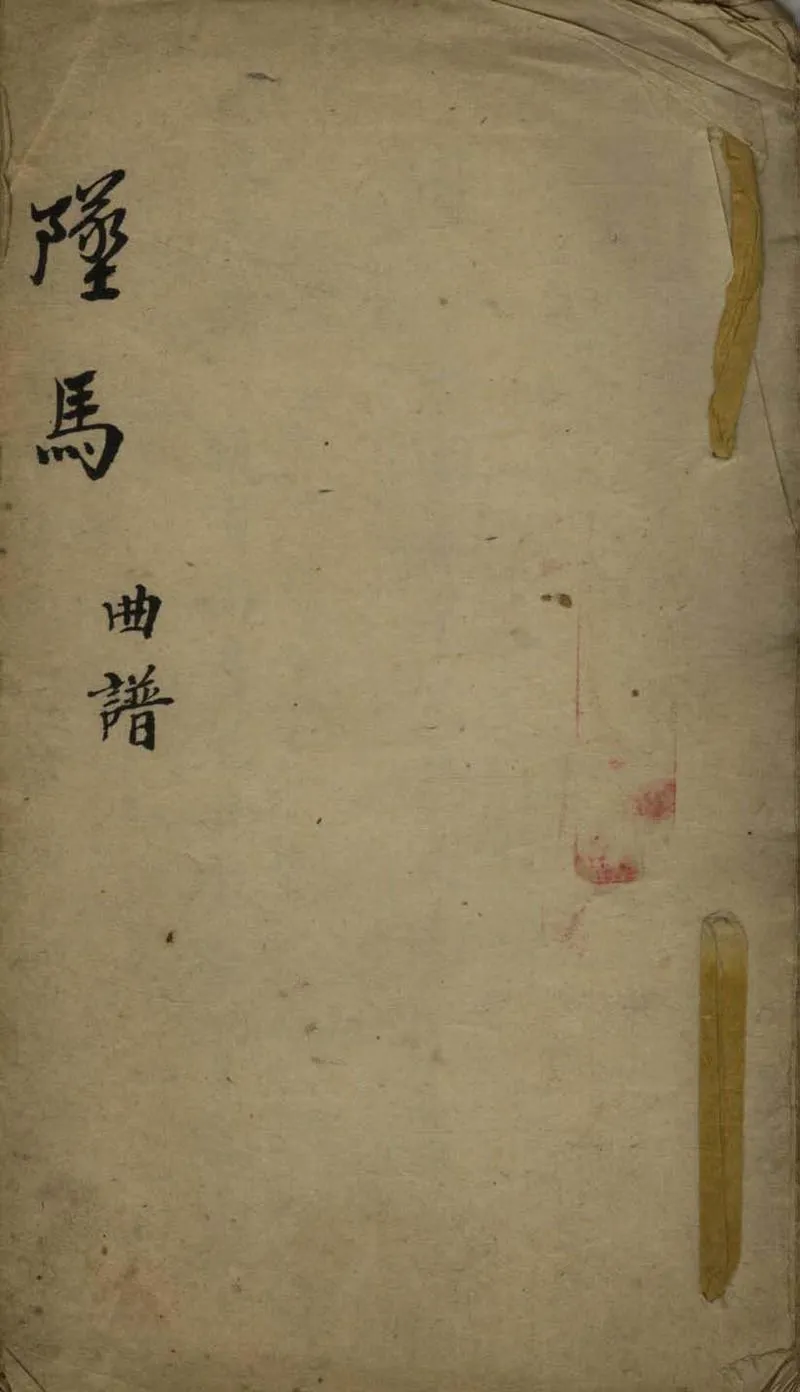 墜馬
曲譜